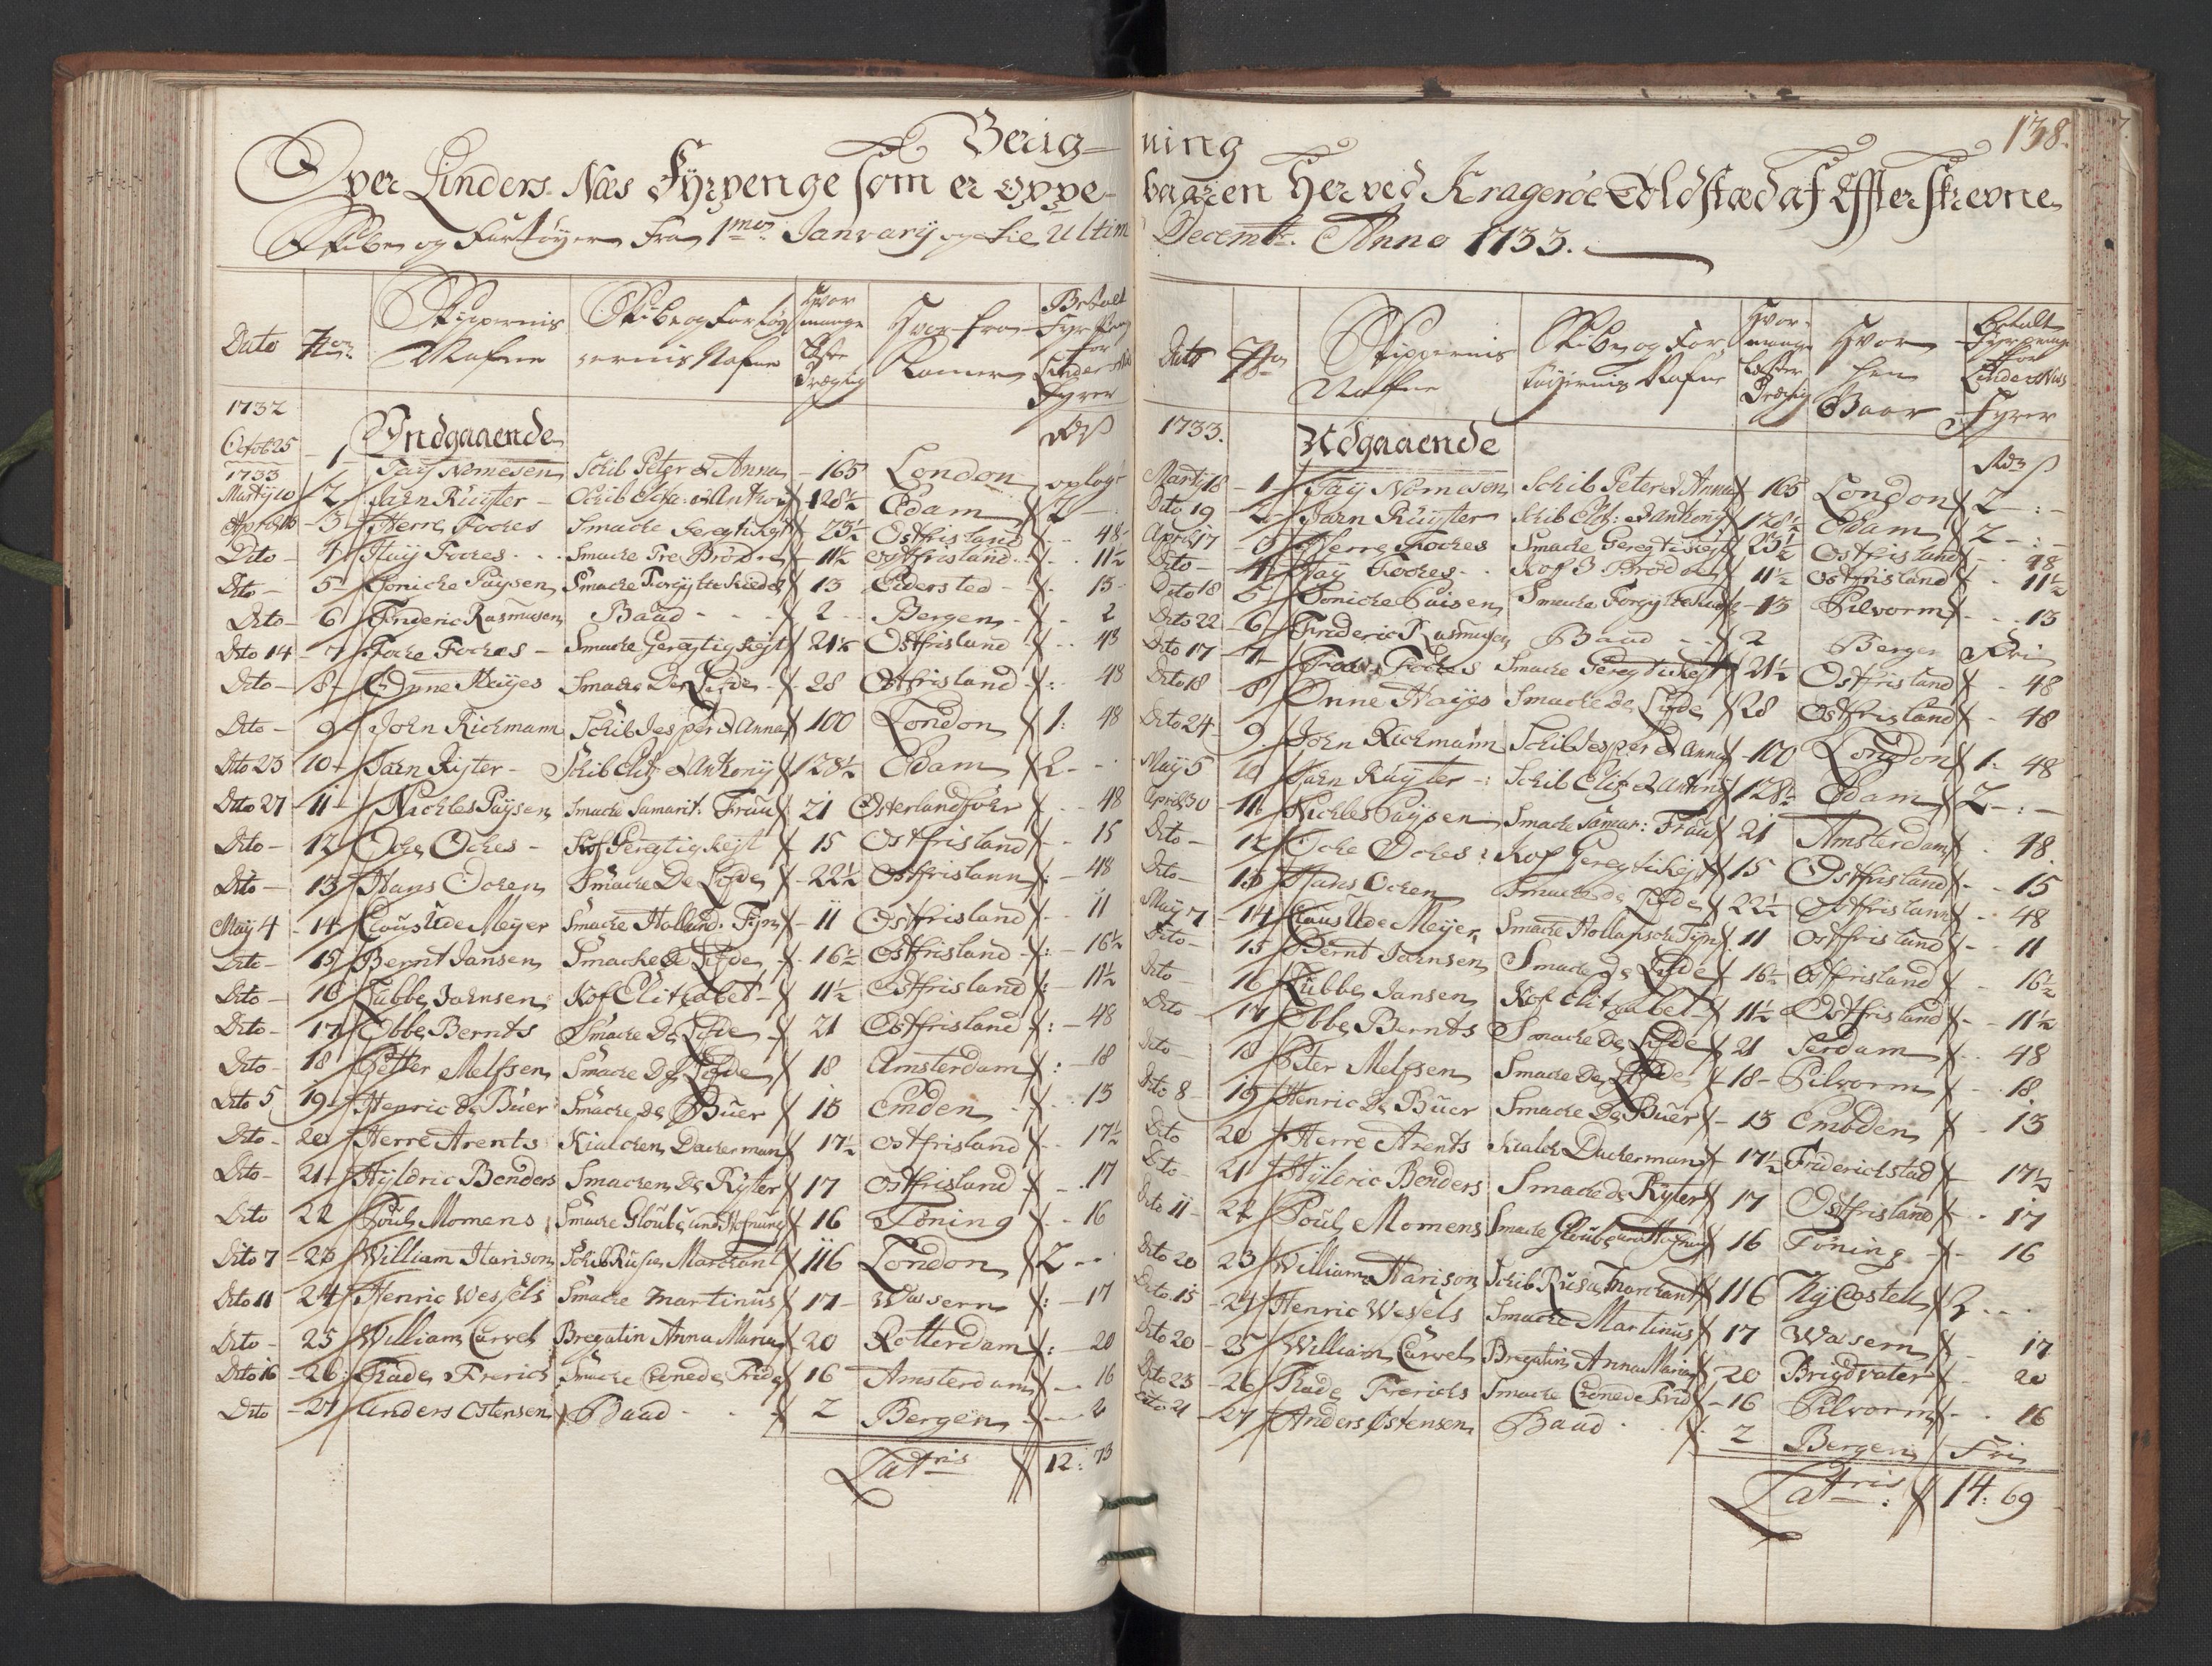 Berig-
Over Linders Næs Fyrpenge som er oppe-
Skibe og Fartøyer fra 1mo January og til Ultim
Dato No Skippernis Nafne Skibe og Fartøy ernis Nafne Hvor mange Læster Drægtig Hvor fra Kommer Betalt Fyr for Linders Fyrer
1732 Indgaaende Rdr ß
Octob 25 1 Taÿ Nomesen Schib Peter & Anna 165 London oplagt
1733
Martÿ 10 2 Jaen Ruÿter Schib Anthoni 128½ Edam 2 -
April 3 Herre Fockes Smacke Geregtikejt 23½ Ostfrisland 48
Dito 4 Haÿ Fockes Smacke Tre Brødre 11½ Ostfrisland 11½
Dito 5 Sonicke Paÿsen Smacke Forgÿlte Riedel 13 Eidersted 13
Dito 6 Frideric Rasmusen Baad 2 Bergen 2
Dito 14 7 Focke Fockes Smacke Geregtigkejt 21½ Ostfrisland 48
Dito 8 Onne Haÿes Smacke De Lifde 28 Ostfrisland 48
Dito 9 John Richmann Schib Jesper & Anna 100 London 1: 48
Dito 23 10 Jaen Rÿter Schib Elitz & Anthonÿ 128½ Edam 2 -
Dito 27 11 Nickles Paÿsen Smacke Samarit: Frau 21 Osterlandføhr 48
Dito 12 Ocke Ockes Kof Geregtigkejt 15 Ostfrisland 15
Dito 13 Hans Ocken Smacke De Lifde 22½ Ostfrislann 48
Maÿ 4 14 Claus Ude Meÿer Smacke Holland: Tÿn 11 Ostfrisland 11
Dito 15 Bernt Jansen Smacke De Lifde 16½ Ostfrisland 16½
Dito 16 Lubbe Jahnsen Kof Elitzabet 11½ Ostfrisland 11½
Dito 17 Ebbe Bernts Smacke De Lifde 21 Ostfrisland 48
Dito 18 Petter Melfsen Smacke De Lifde 18 Amsterdam 18
Dito 5 19 Henric De Buer Smacke De Buer 13 Emden 13
Dito 20 Herre Arents Kialcken Dackerman 17½ Ostfrisland 17½
Dito 21 Hÿldric Benders Smacken De Rÿter 17 Ostfrisland 17
Dito 22 Poul Momens Smacke Gloube und Hofnung 16 Tøning 16
Dito 7 23 William Harison Schib Rusia Marchant 116 London 2 -
Dito 11 24 Henric Wessels Smacke Martinus 17 Wasern 17
Dito 25 William Carvel Bregatin Anna Maria 20 Rotterdam 20
Dito 16 26 Rade Frerich Smacke Cronede Frid 16 Amsterdam 16
Dito 27 Anders Ostensen Baad 2 Bergen 2
Latris 12: 73
138.
ning
baaren Her ved Kragerøe Toldstæd af Effterskrevne
Decembr. Anno 1733.
Dato No Skippernis Nafne Skibe og Far tøyernis Nafne Hvor mange Læster Drægtig Hvor hen Baar Betalt Fyrpenge for Linders Næs Fyrer
1733. Udgaaende Rdr ß
Martÿ 18 1 Taÿ Nomesen Schib Peter & Anna 165 London 2 : -
Dito 19 2 Jaen Ruÿter Schib Elitz: & Anthonÿ 128½ Edam 2 - : -
April 17 3 Herre Fockes Smacke Geregtikejt 23½ Ostfrisland 48
Dito 4 Haÿ Fockes Kof 3 Brødre 11½ Ostfrisland 11½
Dito 18 5 Sonicke Paisen Smacke Forgÿlte 13 Pilworm 13
Dito 22 6 Frideric Rasmusen Baad 2 Bergen Fri
Dito 17 7 Fockes Smacke Geregtikejt 21½ Ostfrisland 48
Dito 18 8 Onne Haÿes Smacke De Lifde 28 Ostfrisland 48
Dito 24 9 John Richmann Schib Jesper & Anna 100 London 1: 48
Maÿ 5 10 Jaen Ruÿter Schib Elitz & Antonÿ 128½ Edam 2 - : -
April 30 11 Nickles Paÿsen Smacke Samar: Frau 21 Amsterdam 48
Dito 12 Ocke Ockes Kof Geregtikejt 15 Ostfrisland 15
Dito 13 Hans Ocken Smacke de Lifde 22½ Ostfrislann 48
Maÿ 7 14 Claus Ude Meÿer Smacke Hollansche Tÿn 11 Ostfrisland 11
Dito 15 Bernt Jahnsen Smacke De Lifde 16½ Ostfrisland 16½
Dito 16 Lubbe Jansen Kof Elitzabet 11½ Ostfrisland 11½
Dito 17 Ebbe Bernts Smacke De Lifde 21 Serdam 48
Dito 18 Peter Melfsen Smacke De Lifde 18 Pilworm 18
Dito 8 19 Henric De Buer Smacke De Buer 13 Embden 13
Dito 20 Herre Arents Kialck Dackerman 17½ Friderichstad 17½
Dito 21 Hÿldric Benders Smacke de Rÿter 17 Ostfrisland 17
Dito 11 22 Poul Momens Smacke Gloube und Hofnung 16 Tøning 16
Dito 20 23 William Harison Schib Rusia Marchant 116 Nÿ Castell 2 -
Dito 15 24 Henric Wesels Smacke Martinus 17 Wasern 17
Dito 20 25 William Carvel Bregatin Anna Maria 20 Brigdvater 20
Dito 23 26 Rade Frerichs Smacke Cronede Frid 16 Pilworm 16
Dito 21 27 Anders Ostensen Baad 2 Bergen Fri
Latris 14: 69